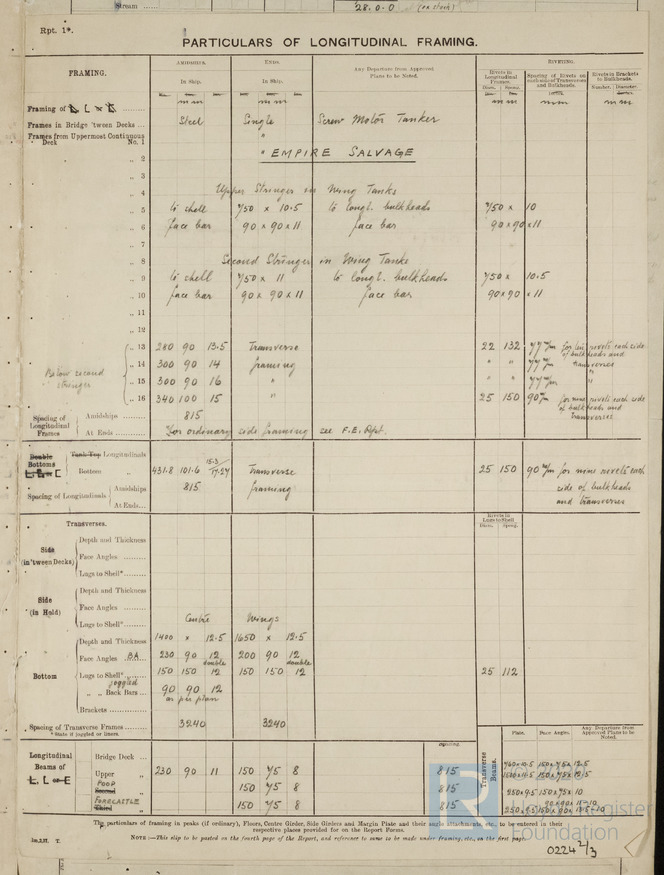 Stream
28.0.0 (ex stock)
Rpt. 1*.
PARTICULARS OF LONGITUDINAL FRAMING.
FRAMING. AMIDSHIPS. ENDS. Any Departure from Approved Plans to be Noted. RIVETING.
In Ship. In Ship. Rivets in Longitudinal Frames. Spacing of Rivets on each side of Transverses and Bulkheads. Rivets in Brackets to Bulkheads.
Diam. Spcng. Number. Diameter.
Framing of L, L or C mm mm mm mm mm
Frames in Bridge 'tween Decks ... Steel Single Screw Motor Tanker
Frames from Uppermost Continuous Deck No. 1 "
" 2 " EMPIRE SALVAGE
" 3
" 4 Upper Stringer in Wing Tanks
" 5 to shell 750 x 10.5 to longt. bulkheads 750 x 10
" 6 face bar 90 x 90 x 11 face bar 90 x 90 x 11
" 7
" 8 Second Stringer in Wing Tanks
" 9 to shell 750 x 11 to longt. bulkheads 750 x 10.5
" 10 face bar 90 x 90 x 11 face bar 90x90 x 11
" 11
" 12
" 13 280 90 13.5 Transverse 22 132 77 m/m for rivets each side
Below second stringer " 14 300 90 14 framing " " 77 m/m of bulkheads and transverses
" 15 300 90 16 " " " 77 m/m "
" 16 340 100 15 " 25 150 90 m/m for nine rivets each side
Spacing of Longitudinal Frames Amidships 815 of bulkheads and transverses
At Ends For ordinary side framing see F.E. Rpt.
Double Bottoms L, L or C Tank Top Longitudinals
Bottom " 431.8 101.6 15.3/17.27 Transverse framing 25 150 90 m/m for nine rivets each
Spacing of Longitudinals Amidships 815 side of bulkheads
At Ends... and transverses
Transverses. Rivets in Lugs to Shell
Diam. Spcng.
Side (in 'tween Decks) Depth and Thickness
Face Angles
Lugs to Shell*
Side (in Hold) Depth and Thickness
Face Angles
Lugs to Shell* Centre Wings
Bottom Depth and Thickness 1400 x 12.5 1650 x 12.5
Face Angles BA 230 90 12 200 90 12
Lugs to Shell* 150 150 12 double 150 150 12 double 25 112
joggled
" " Back Bars ... 90 90 12
as per plan
Brackets
Spacing of Transverse Frames 3240 3240
* State if joggled or liners.
Spacing Transverse Beams. Plate. Face Angles. Any Departure from Approved Plans to be Noted.
Longitudinal Beams of L, L or C Bridge Deck
Upper " 230 90 11 150 75 8 815
POOP Second " 150 75 8 815 250x9.5 150x75x10
FORECASTLE Third " 150 75 8 815
Register
Foundation
The particulars of framing in peaks (if ordinary), Floors, Centre Girder, Side Girders and Margin Plate and their angle attachments, etc., to be entered in their
respective places provided for on the Report Forms.
NOTE:—This slip to be pasted on the fourth page of the Report, and reference to same to be made under framing, etc., on the first page.
0224 2/3